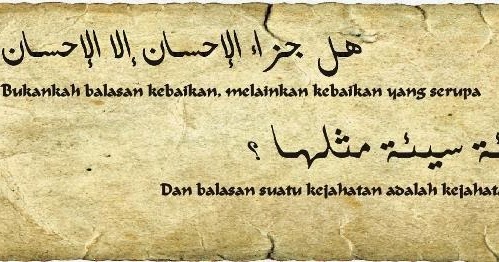 هل جزاء الإحسان إلا الإحسان
Bukankah balasan kebaikan, melainkan kebaikan yang serupa
سيئة مثلها ؟
Dan balasan suatu kejahatan adalah